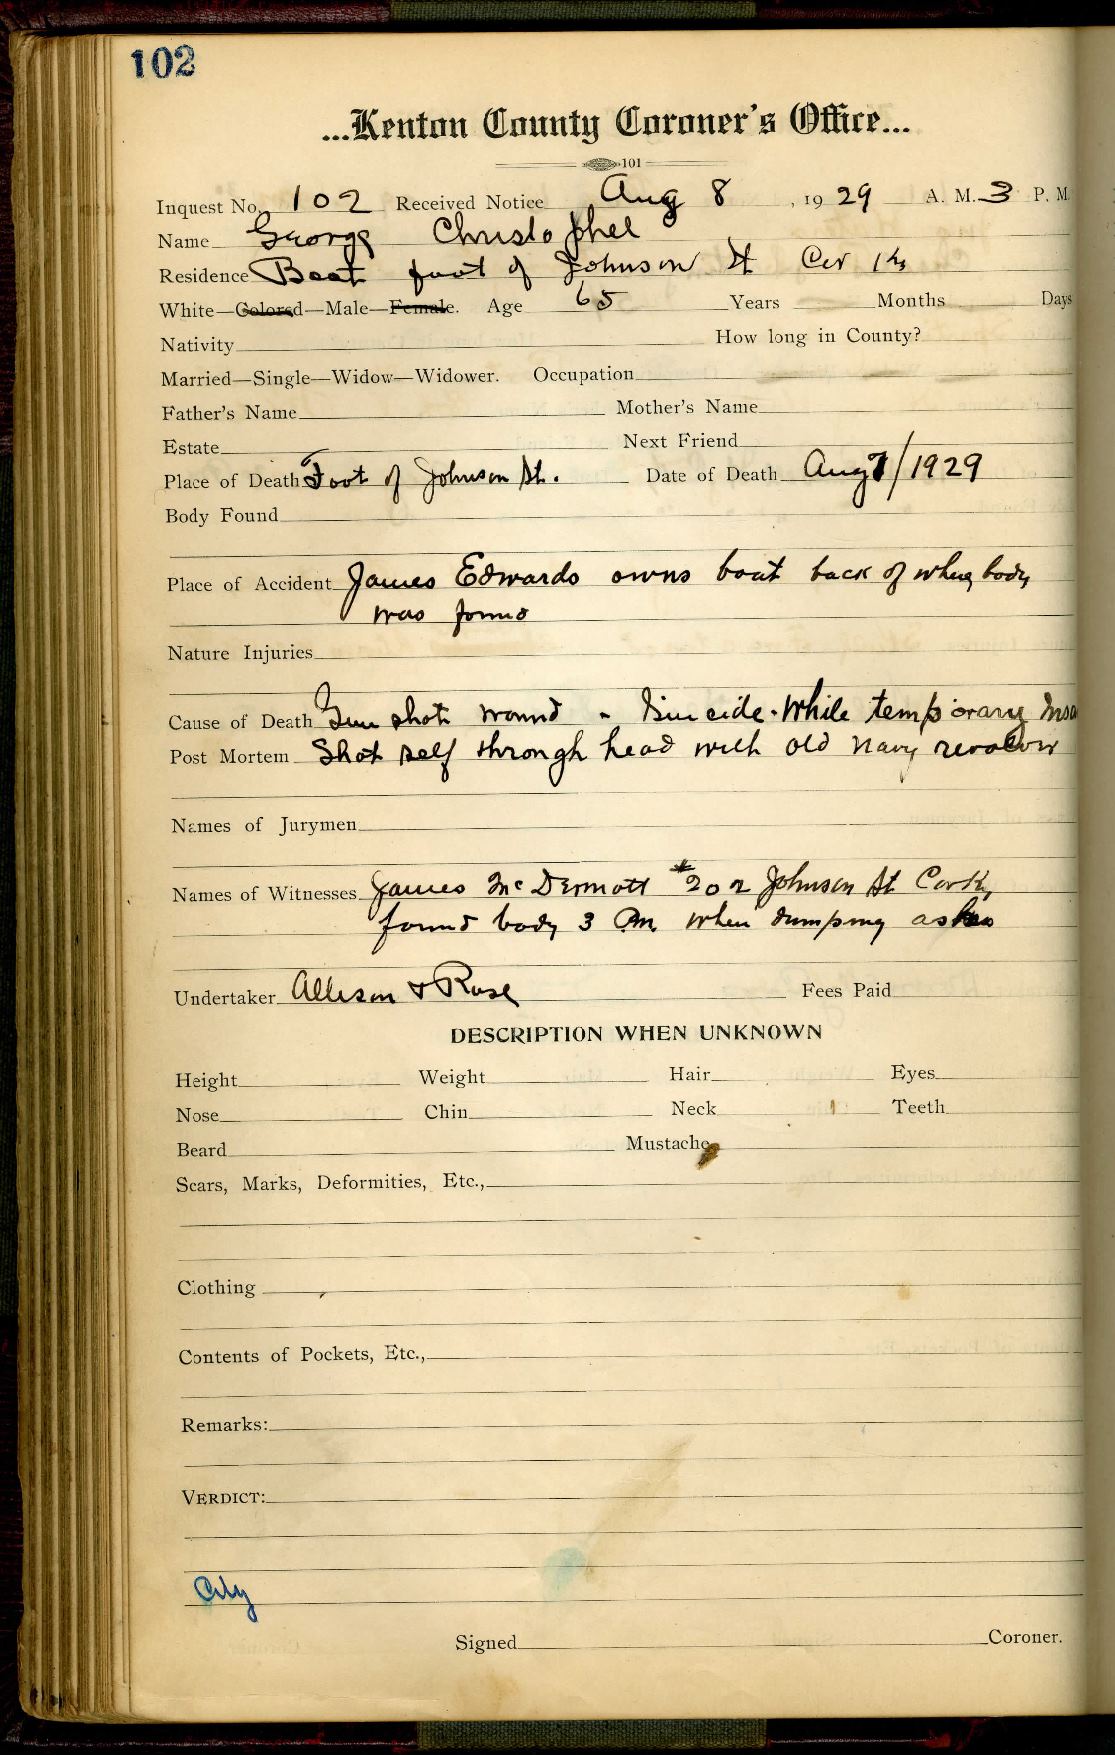 102
...Kenton County Coroner's Office...
101
Inquest No. 102 Received Notice Aug 8, 1929 A. M. 3 P. M.
Name George Christophel
Residence Boat foot of Johnson St Cov Ky
White—Colored—Male—Female. Age 65 Years Months Days
Nativity How long in County?
Married—Single—Widow—Widower. Occupation
Father's Name Mother's Name
Estate Next Friend
Place of Death Foot of Johnson St. Date of Death Aug 7/1929
Body Found
Place of Accident James Edwards owns boat back of where body
was found
Nature Injuries
Cause of Death Gun shot wound - Suicide - While temporary Insa
Post Mortem Shot self through head with old navy revolver
Names of Jurymen
Names of Witnesses James McDermott #202 Johnson St Cov Ky,
found body 3 P.M. when dumping ashes
Undertaker Allison & Rose Fees Paid
DESCRIPTION WHEN UNKNOWN
Height Weight Hair Eyes
Nose Chin Neck Teeth
Beard Mustache
Scars, Marks, Deformities, Etc.,
Clothing
Contents of Pockets, Etc.,
Remarks:
VERDICT:
City
Signed Coroner.